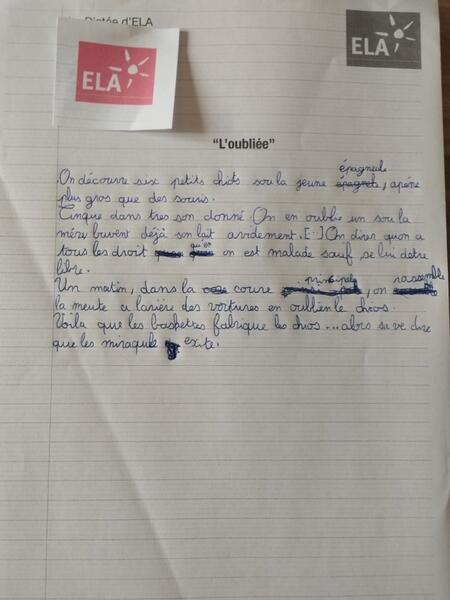 Dictée d'ELA
ELA
ELA
"L'oubliée"
épagneule
On découvre six petits chiots sou la jeune, apéne
plus gros que des souris.
Cinque dans tres son donné. On en oublie un sou la
mère buvent déjà son lait avidement. [...] On direr quon a
tous les droit qu'on on est malade sauf, se lui detre
libre.
principale rassemble
Un matin, dans la coure, on
la meute a larière des voitures en oublien le chios.
Voila que les baspetres fabrique les chios... alors sa ve dire
que les miraqule exite.